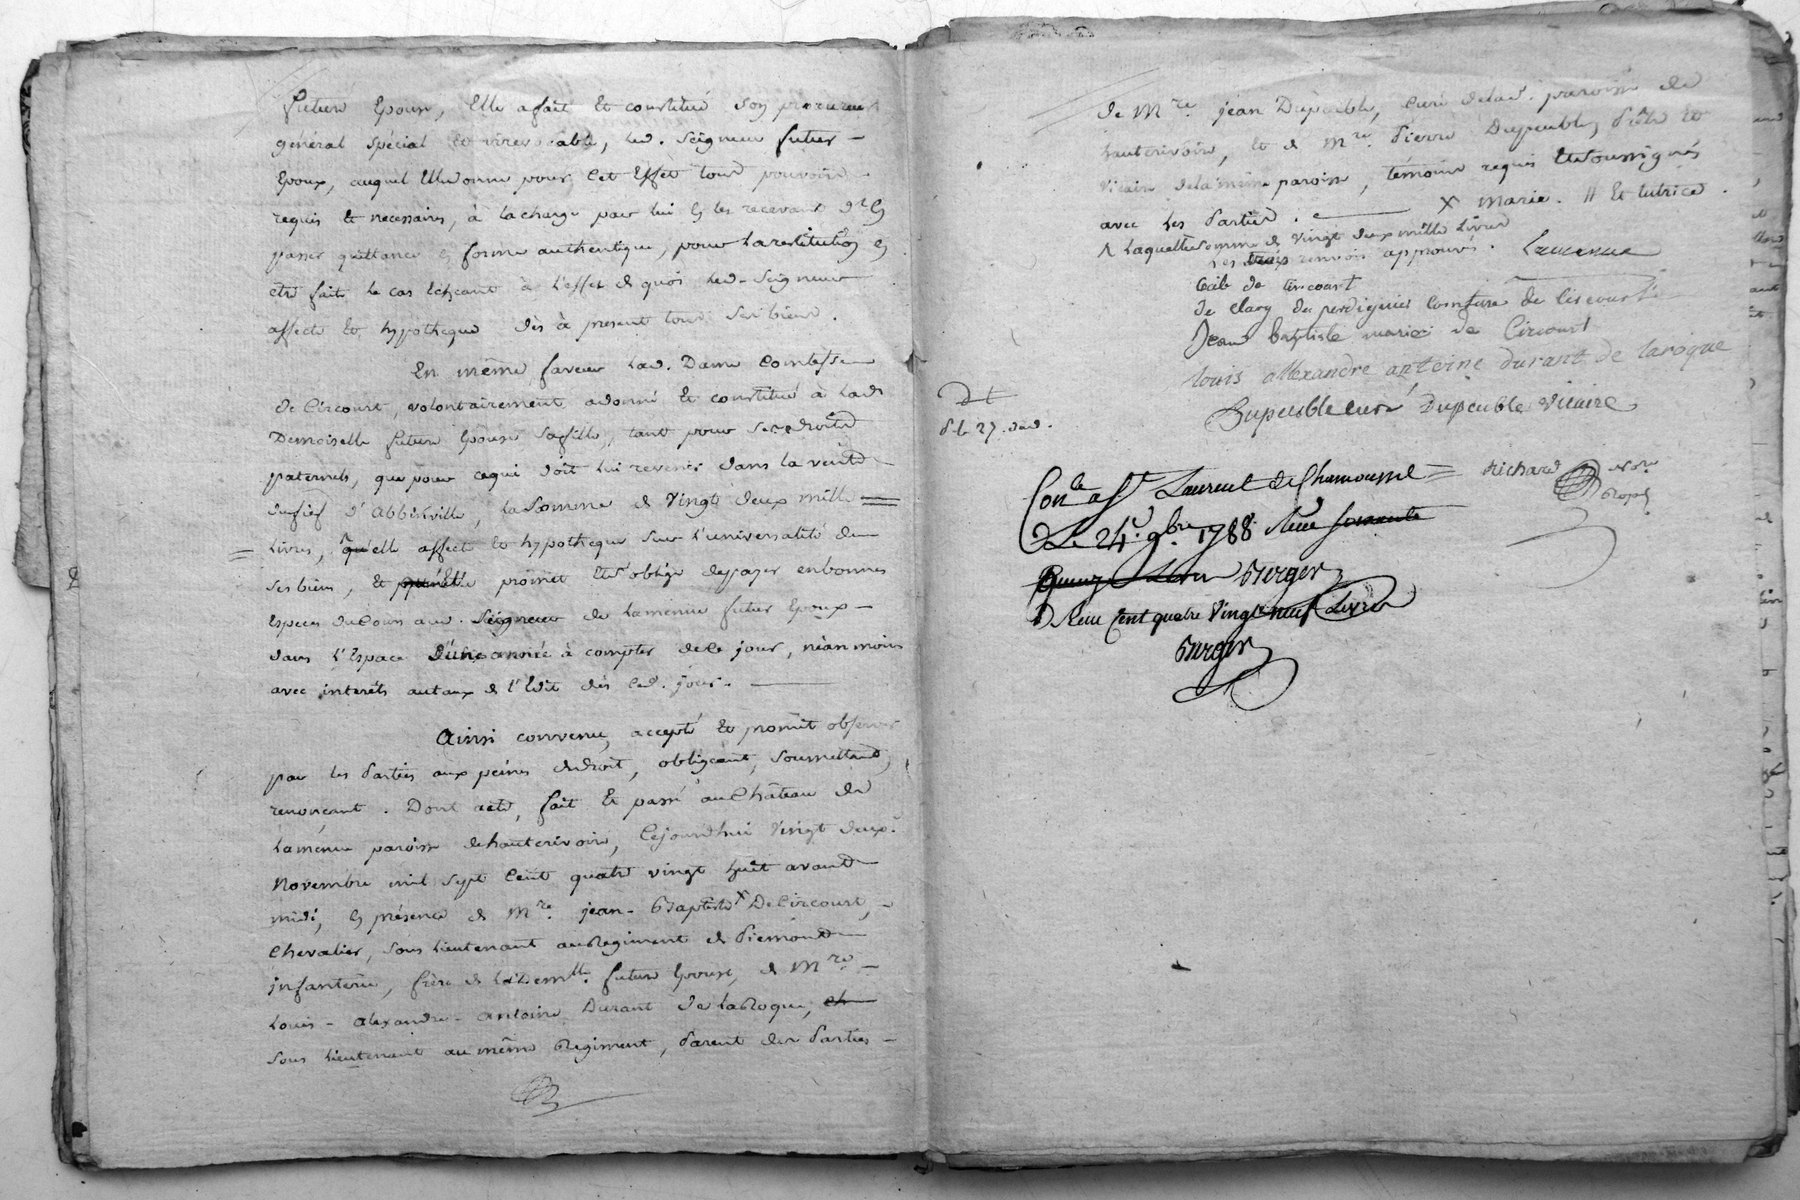 future Epouse, Elle a fait et constitué son procureur
général spécial et irrévocable, led. Seigneur futur
Epoux, auquel Elle donne pour cet Effet tous pouvoirs
requis et necessaires, à la charge par lui en les recevant d'en
passer quittance en forme authentique, pour la restitution en
etre faite le cas Echeant à l'effet de quoi led. Seigneur
affecte et hypotheque dès à present tous ses biens.
En même faveur lad. Dame Comtesse
de Circourt, volontairement a donné et constitué à lad.
Demoiselle future Epouse sa fille, tant pour ses droits
paternels, que pour ce qui doit lui revenir dans la vente
du fief d'Abbinville, la somme de Vingt deux mille =
Livres, qu'elle affecte et hypotheque sur l'universalité de
ses biens, et promet et s'oblige de payer en bonnes
Especes de Cours aud. Seigneur de lamenue futur Epoux
dans l'Espace d'une année à compter de ce jour, néanmoins
avec interêts au taux de l'Edit dès ced. jour.
Ainsi convenu, accepté et promit observer
par les Parties aux peines de droit, obligeant, soumettant,
renonçant. Dont acte, fait et passé au Château de
lamenue paroisse de hauterivoire, Cejourd'hui Vingt deux
Novembre mil sept Cent quatre vingt huit avant
midi, en présence de Mre. jean-Baptiste x De Circourt,
Chevalier, sous Lieutenant au Regiment de Piemond
infanterie, frère de la Demlle. future Epouse, de Mre
Louis-alexandre-antoine Durant de la Roque, et
sous Lieutenant au même Regiment, Parent des Parties
de Mre. jean Dupeuble, Curé de lad. paroisse de
hauterivoire, et de Mre. Pierre Dupeuble, Prêtre et
Vicaire de la même paroisse, témoins requis et soussignés
avec les Parties. x marie. // et tutrice.
^ laquelle somme de Vingt deux mille Livres
Les trois renvois approuvés. Lamenue
Cécile de Circourt
de Clary du perdiguier Comtesse de Circourt
Jean baptiste marie de Circourt
louis allexandre antoine durant de laroque
Dupeuble curé Dupeuble Vicaire
P. le 27. dud.
Conle. a St. Laurent de Chamousset = Richard Nore
Le 24. 9bre. 1788. Reçu soixante
quinze Livres Berger
Reçu Cent quatre Vingt neuf Livres
Berger